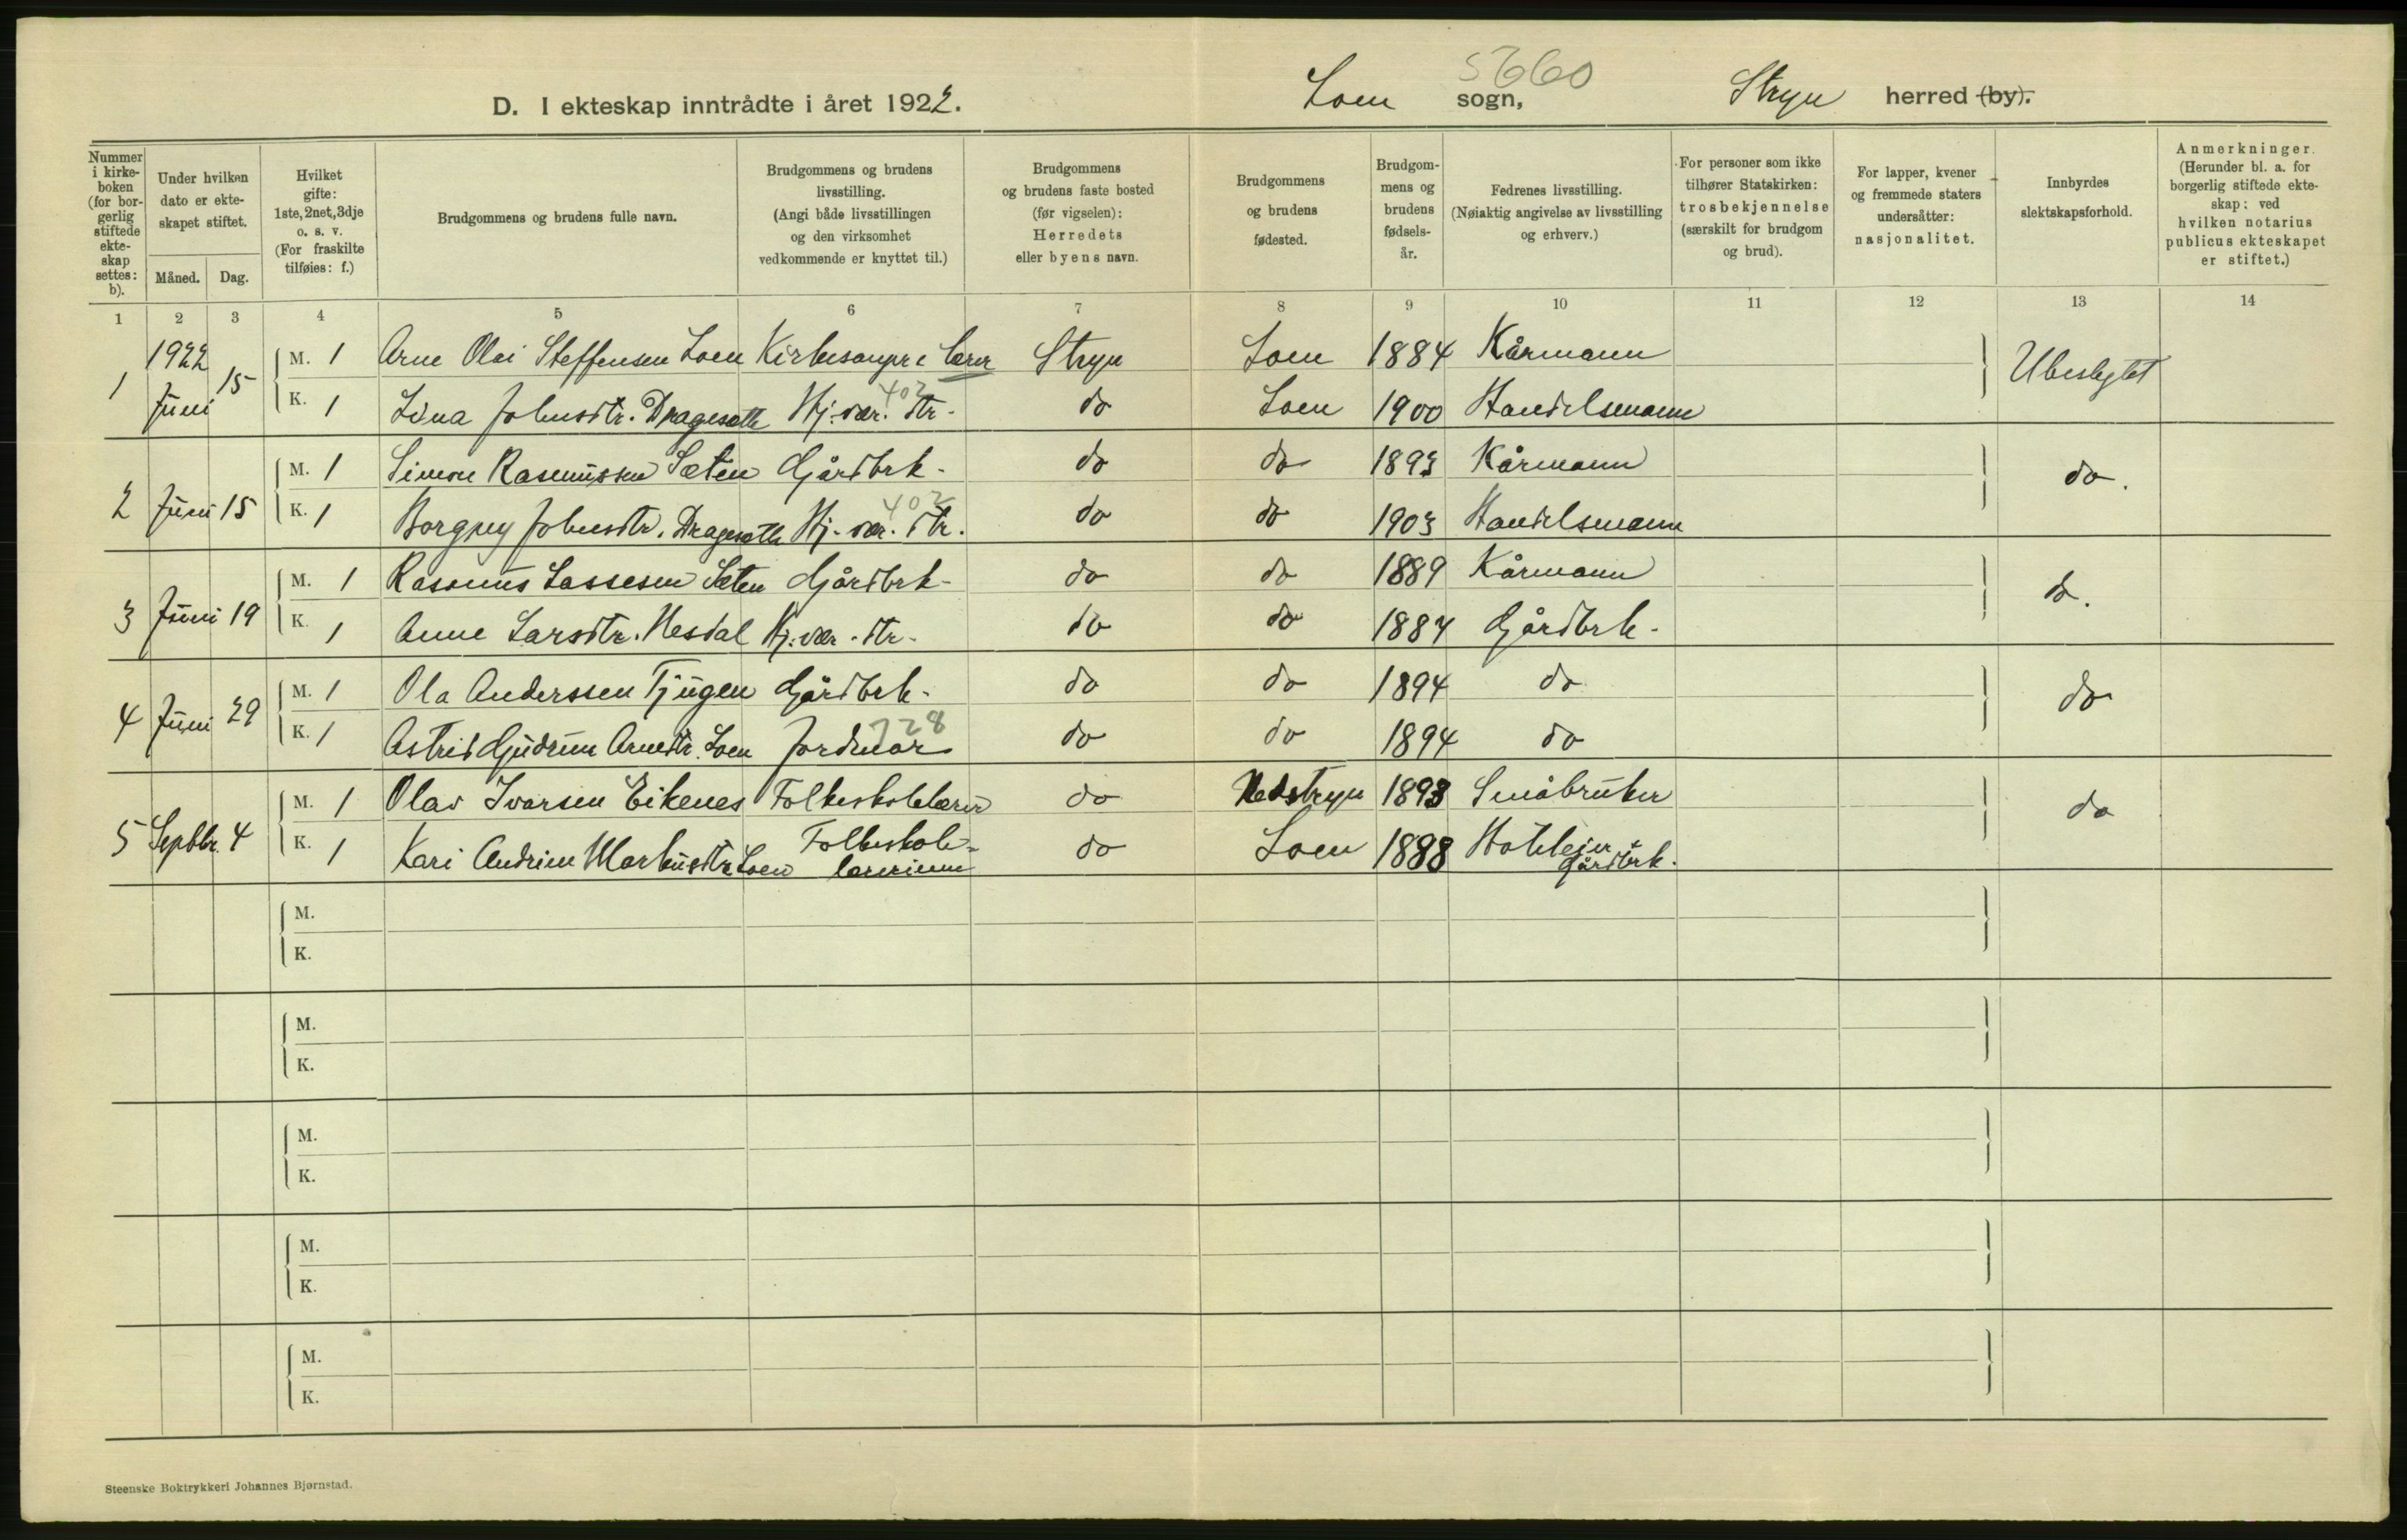 5660
D. I ekteskap inntrådte i året 1922. Loen sogn, Stryn herred (by).
Nummer i kirkeboken (for borgerlig stiftede ekteskap settes: b).
Under hvilken dato er ekteskapet stiftet.
Måned. Dag.
Hvilket gifte: 1ste, 2net, 3dje o. s. v. (For fraskilte tilføies: f.)
Brudgommens og brudens fulle navn.
Brudgommens og brudens livsstilling. (Angi både livsstillingen og den virksomhet vedkommende er knyttet til.)
Brudgommens og brudens faste bosted (før vigselen): Herredets eller byens navn.
Brudgommens og brudens fødested.
Brudgommens og brudens fødselsår.
Fedrenes livsstilling. (Nøiaktig angivelse av livsstilling og erhverv.)
For personer som ikke tilhører Statskirken: trosbekjennelse (særskilt for brudgom og brud).
For lapper, kvener og fremmede staters undersåtter: nasjonalitet.
Innbyrdes slektskapsforhold.
Anmerkninger. (Herunder bl. a. for borgerlig stiftede ekteskap: ved hvilken notarius publicus ekteskapet er stiftet.)
1 2 3 4 5 6 7 8 9 10 11 12 13 14
1922
1 Juni 15 M. 1 Arne Olai Steffensen Loen Kirkesanger lærer Stryn Loen 1884 Kårmann Ubeslegtet
K. 1 Lina Johnsdtr. Dragesætle Hj. vær. dtr. 402 do Loen 1900 Handelsmann
2 Juni 15 M. 1 Simon Rasmussen Sæten Gårdbrk. do do 1893 Kårmann do.
K. 1 Borgny Johnsdtr. Dragesætle Hj. vær. dtr. 402 do do 1903 Handelsmann
3 Juni 19 M. 1 Rasmus Lassesen Sæten Gårdbrk. do do 1889 Kårmann do.
K. 1 Anne Larsdtr. Nesdal Hj. vær. dtr. do do 1884 Gårdbrk.
4 Juni 29 M. 1 Ola Anderssen Tjugen Gårdbrk. do do 1894 do do
K. 1 Astrid Gjudrun Arnedtr. Loen Jordmor 728 do do 1894 do
5 Septbr. 4 M. 1 Olav Ivarsen Eikenes Folkeskolelærer do Nedstryn 1893 Småbruker do
K. 1 Kari Andrine Markusdtr Loen Folkeskolelærerinne do Loen 1888 Hoteleier & Gårdbrk.
M.
K.
M.
K.
M.
K.
M.
K.
M.
K.
Steenske Boktrykkeri Johannes Bjørnstad.